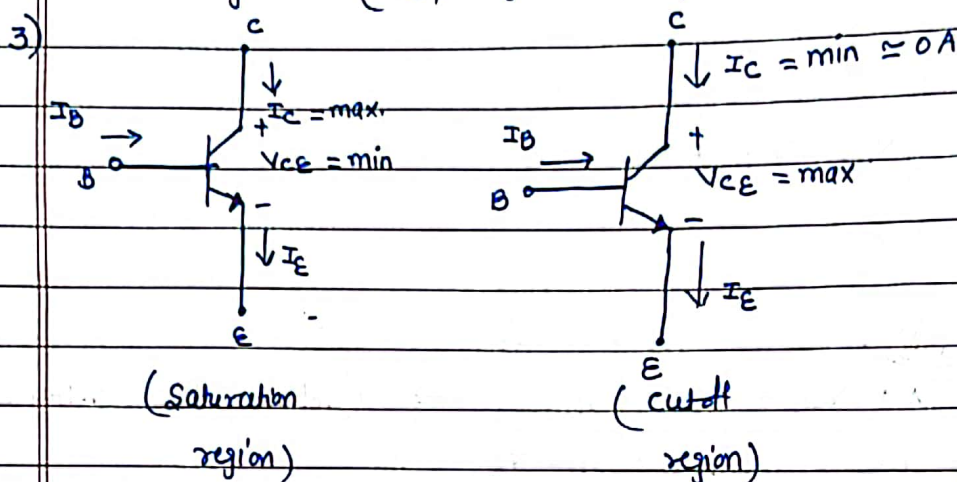 3)
C
I_C = max.
I_B
+
V_CE = min
B
-
I_E
E
(Saturation
region)
C
I_C = min ≃ 0 A
I_B
+
V_CE = max
B
-
I_E
E
(cutoff
region)